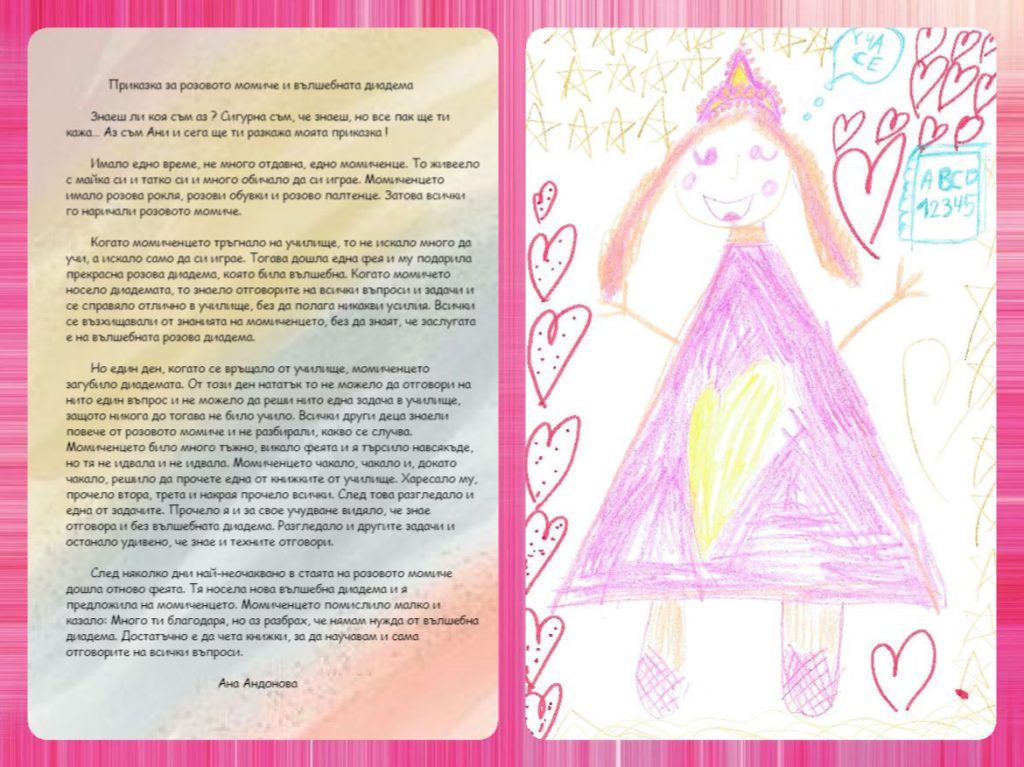 Приказка за розовото момиче и вълшебната диадема
Знаеш ли коя съм аз ? Сигурна съм, че знаеш, но все пак ще ти
кажа... Аз съм Ани и сега ще ти разкажа моята приказка !
Имало едно време, не много отдавна, едно момиченце. То живеело
с майка си и татко си и много обичало да си играе. Момиченцето
имало розова рокля, розови обувки и розово палтенце. Затова всички
го наричали розовото момиче.
Когато момиченцето тръгнало на училище, то не искало много да
учи, а искало само да си играе. Тогава дошла една фея и му подарила
прекрасна розова диадема, която била вълшебна. Когато момичето
носело диадемата, то знаело отговорите на всички въпроси и задачи и
се справяло отлично в училище, без да полага никакви усилия. Всички
се възхищавали от знанията на момиченцето, без да знаят, че заслугата
е на вълшебната розова диадема.
Но един ден, когато се връщало от училище, момиченцето
загубило диадемата. От този ден нататък то не можело да отговори на
нито един въпрос и не можело да реши нито една задача в училище,
защото никога до тогава не било учило. Всички други деца знаели
повече от розовото момиче и не разбирали, какво се случва.
Момиченцето било много тъжно, викало феята и я търсило навсякъде,
но тя не идвала и не идвала. Момиченцето чакало, чакало и, докато
чакало, решило да прочете една от книжките от училище. Харесало му,
прочело втора, трета и накрая прочело всички. След това разгледало и
една от задачите. Прочело я и за свое учудване видяло, че знае
отговора и без вълшебната диадема. Разгледало и другите задачи и
останало удивено, че знае и техните отговори.
След няколко дни най-неочаквано в стаята на розовото момиче
дошла отново феята. Тя носела нова вълшебна диадема и я
предложила на момиченцето. Момиченцето помислило малко и
казало: Много ти благодаря, но аз разбрах, че нямам нужда от вълшебна
диадема. Достатъчно е да чета книжки, за да научавам и сама
отговорите на всички въпроси.
Ана Андонова
УЧА
СЕ
ABCD
12345